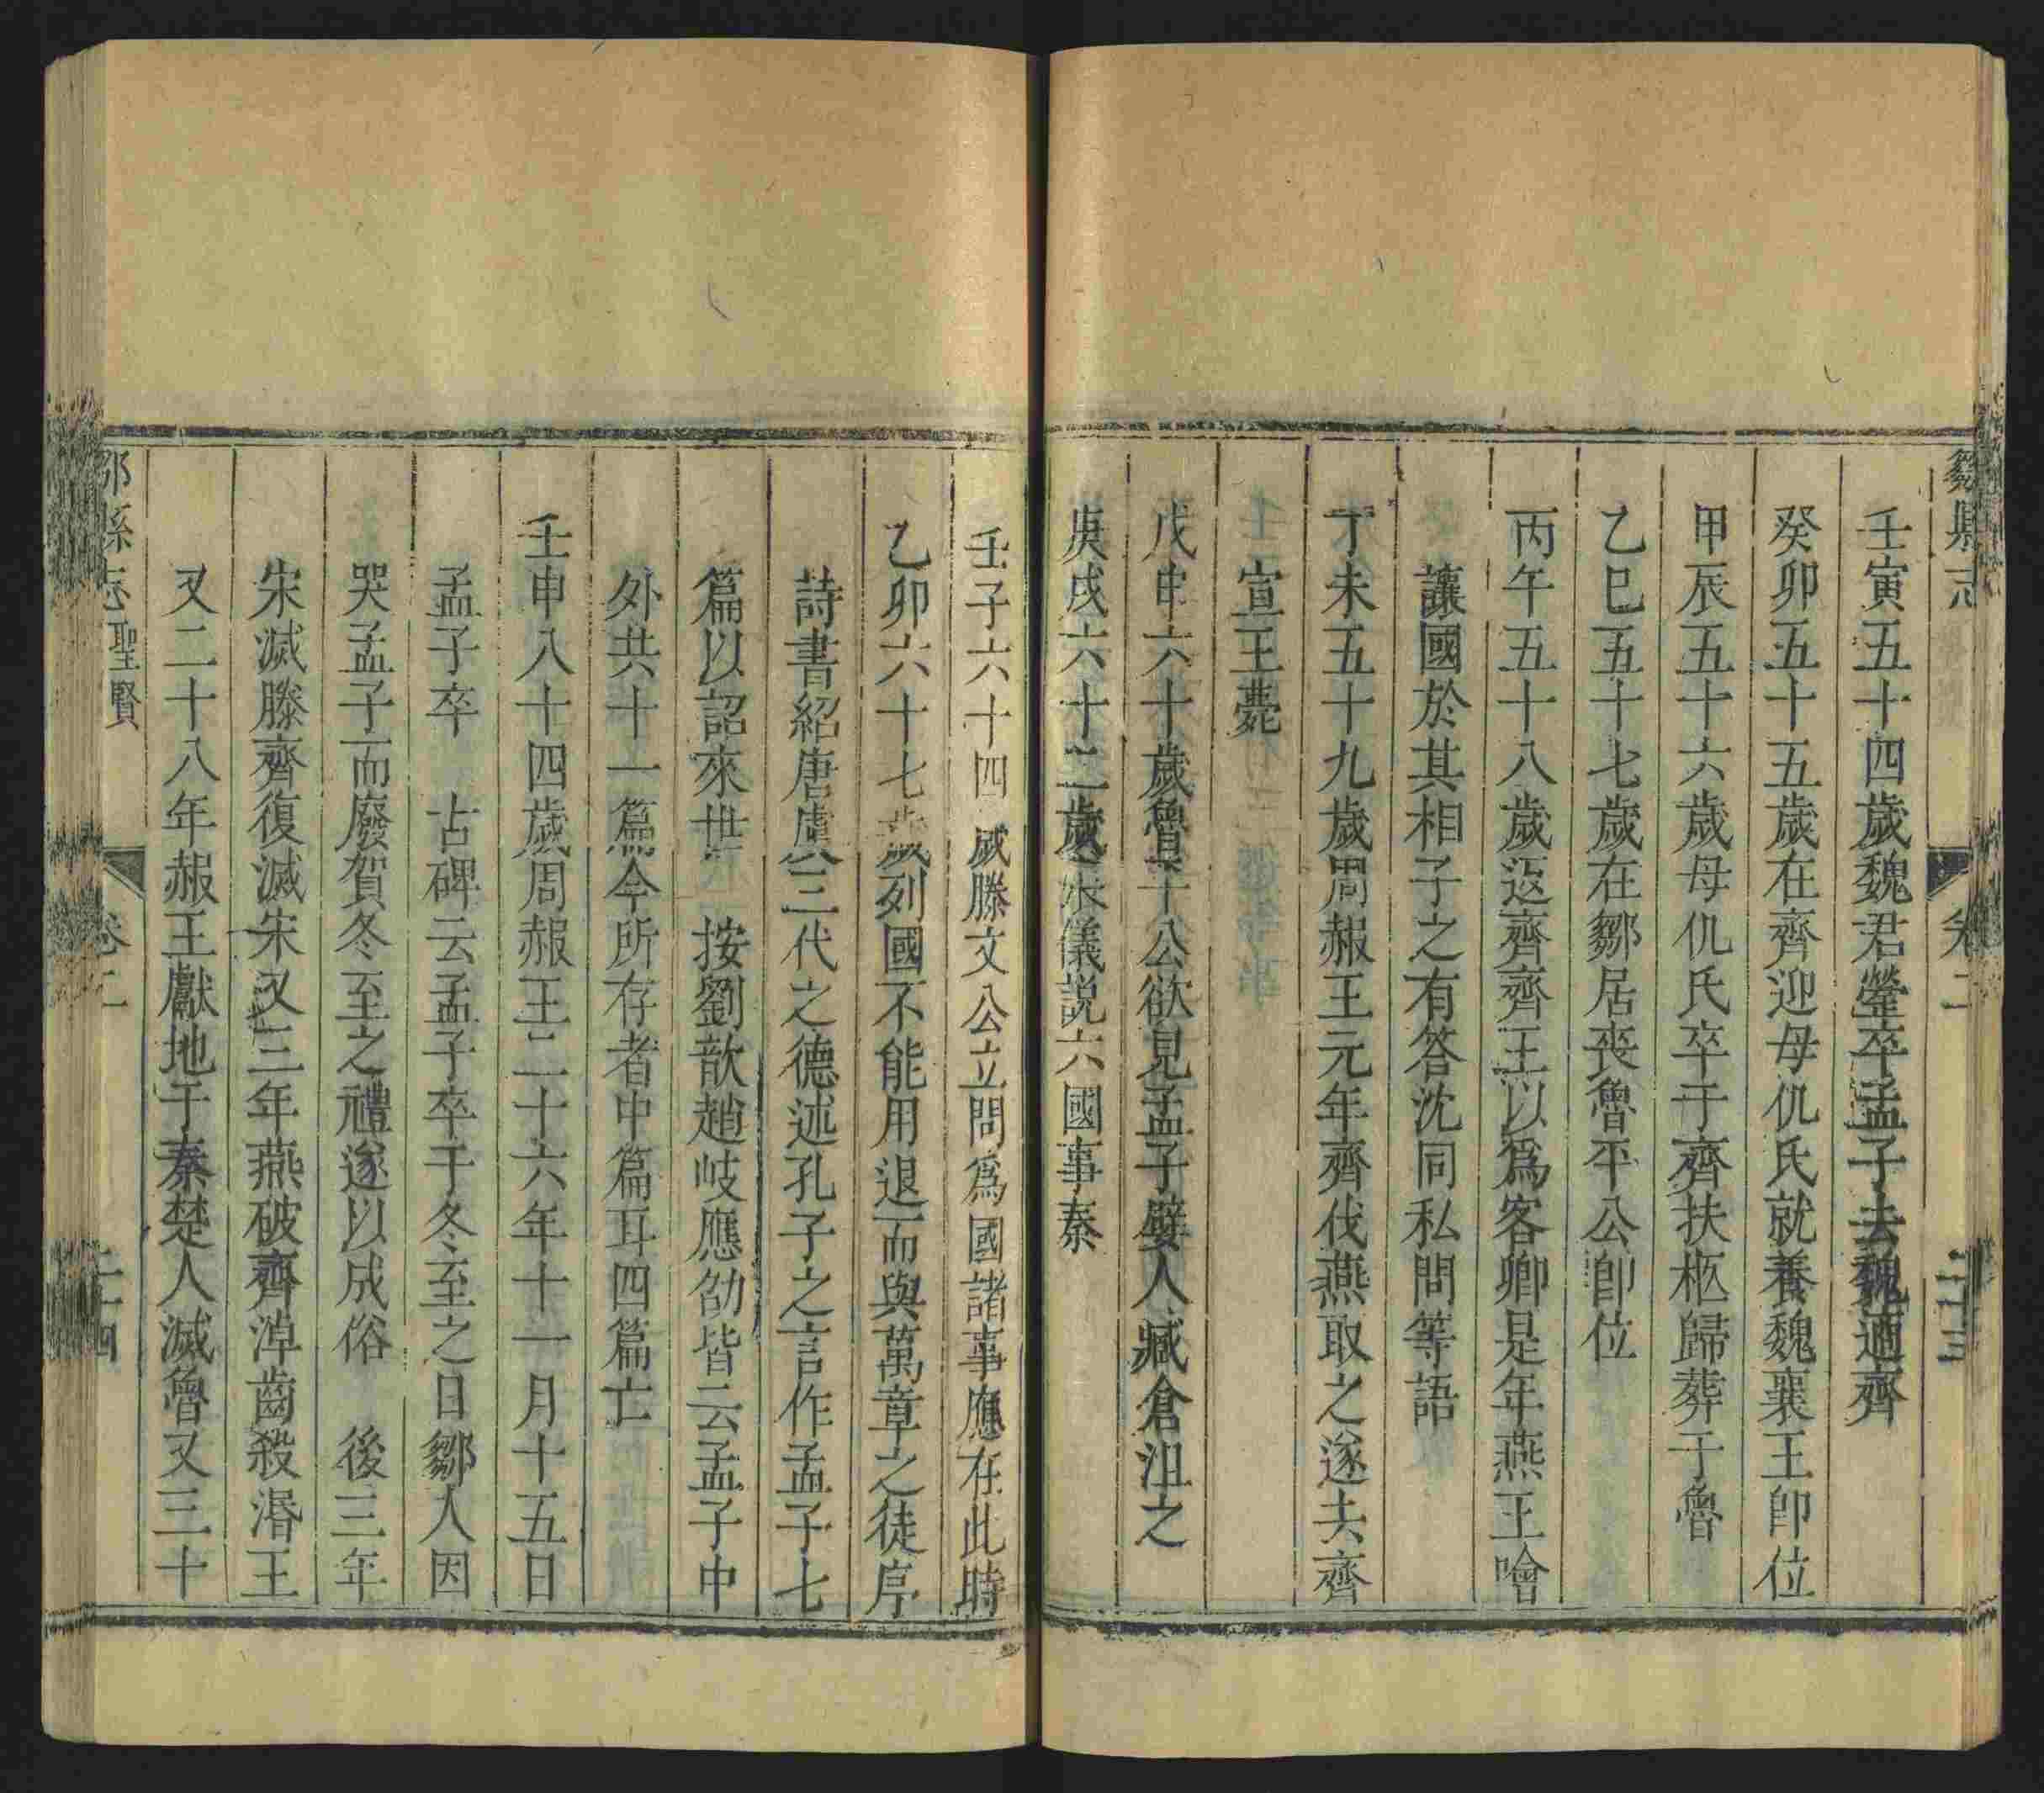 鄒縣志 卷二 二十三
壬寅五十四歲魏君罃卒孟子去魏適齊
癸卯五十五歲在齊迎母仉氏就養魏襄王卽位
甲辰五十六歲母仉氏卒于齊扶柩歸葬于魯
乙巳五十七歲在鄒居喪魯平公卽位
丙午五十八歲返齊齊王以爲客卿是年燕王噲
讓國於其相子之有答沈同私問等語
丁未五十九歲周赧王元年齊伐燕取之遂去齊
宣王薨
戊申六十歲魯平公欲見孟子嬖人臧倉沮之
庚戌六十二歲張儀説六國事秦
壬子六十四歲滕文公立問爲國諸事應在此時
乙卯六十七歲列國不能用退而與萬章之徒序
詩書紹唐虞三代之德述孔子之言作孟子七
篇以詔來世 按劉歆趙岐應劭皆云孟子中
外共十一篇今所存者中篇耳四篇亡
壬申八十四歲周赧王二十六年十一月十五日
孟子卒 古碑云孟子卒于冬至之日鄒人因
哭孟子而廢賀冬至之禮遂以成俗 後三年
宋滅滕齊復滅宋又三年燕破齊淖齒殺湣王
又二十八年赧王獻地于秦楚人滅魯又三十
鄒縣志 聖賢 卷二 二十四